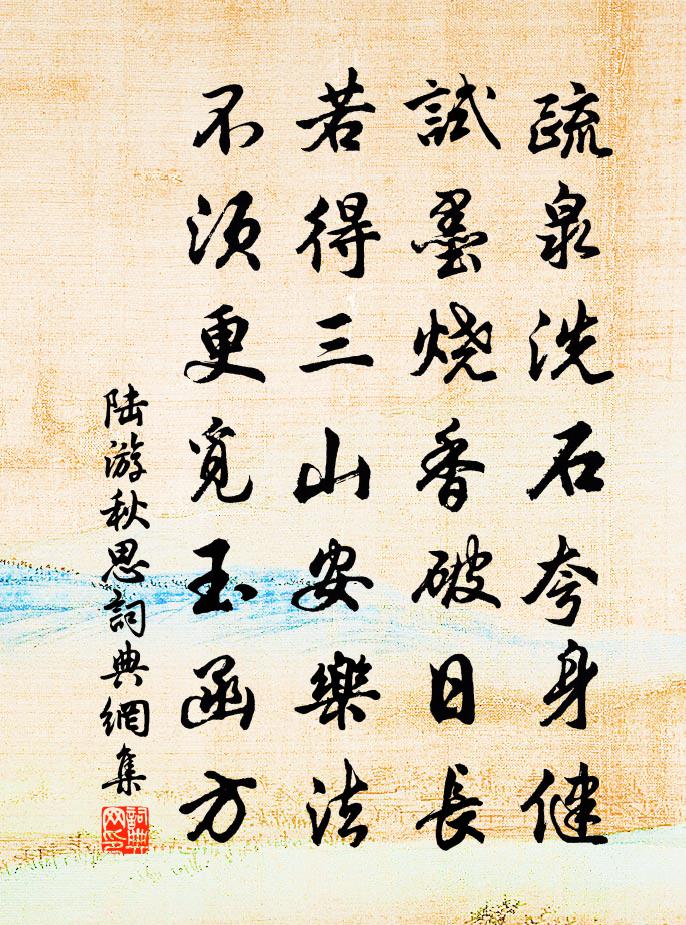 疏泉洗石夸身健
試墨燒香破日長
若得三山安樂法
不須更覓玉函方
陆游秋思詞典網集
詞典网印